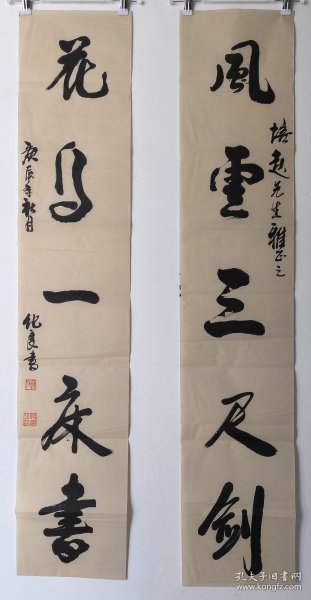 風雲三尺劍
培起先生雅正之
花鳥一床書
庚辰年秋月
化良書
孔夫子旧书网